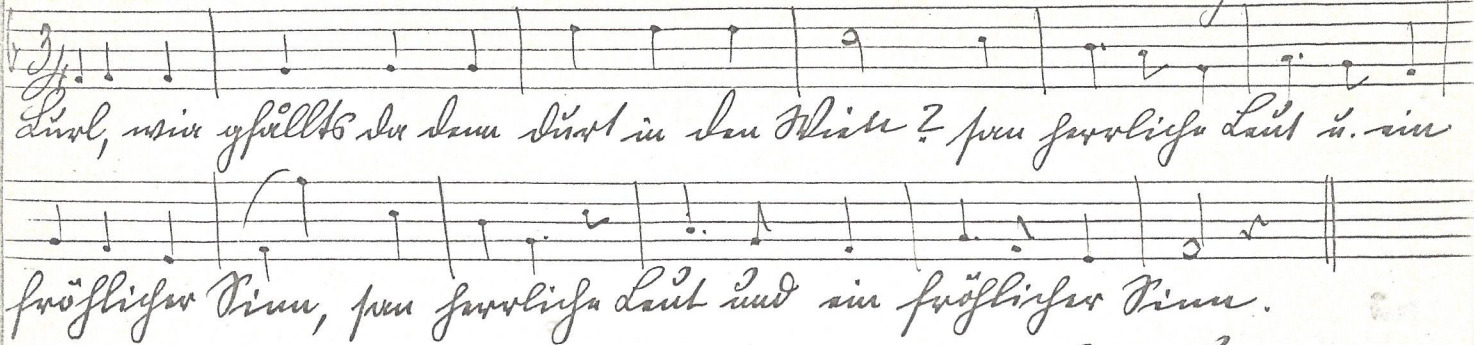 3/4
wia gfållts da denn durt in den Wien? san herrliche Leut u. ein
fröhlicher Sinn, san herrliche Leut und ein fröhlicher Sinn.